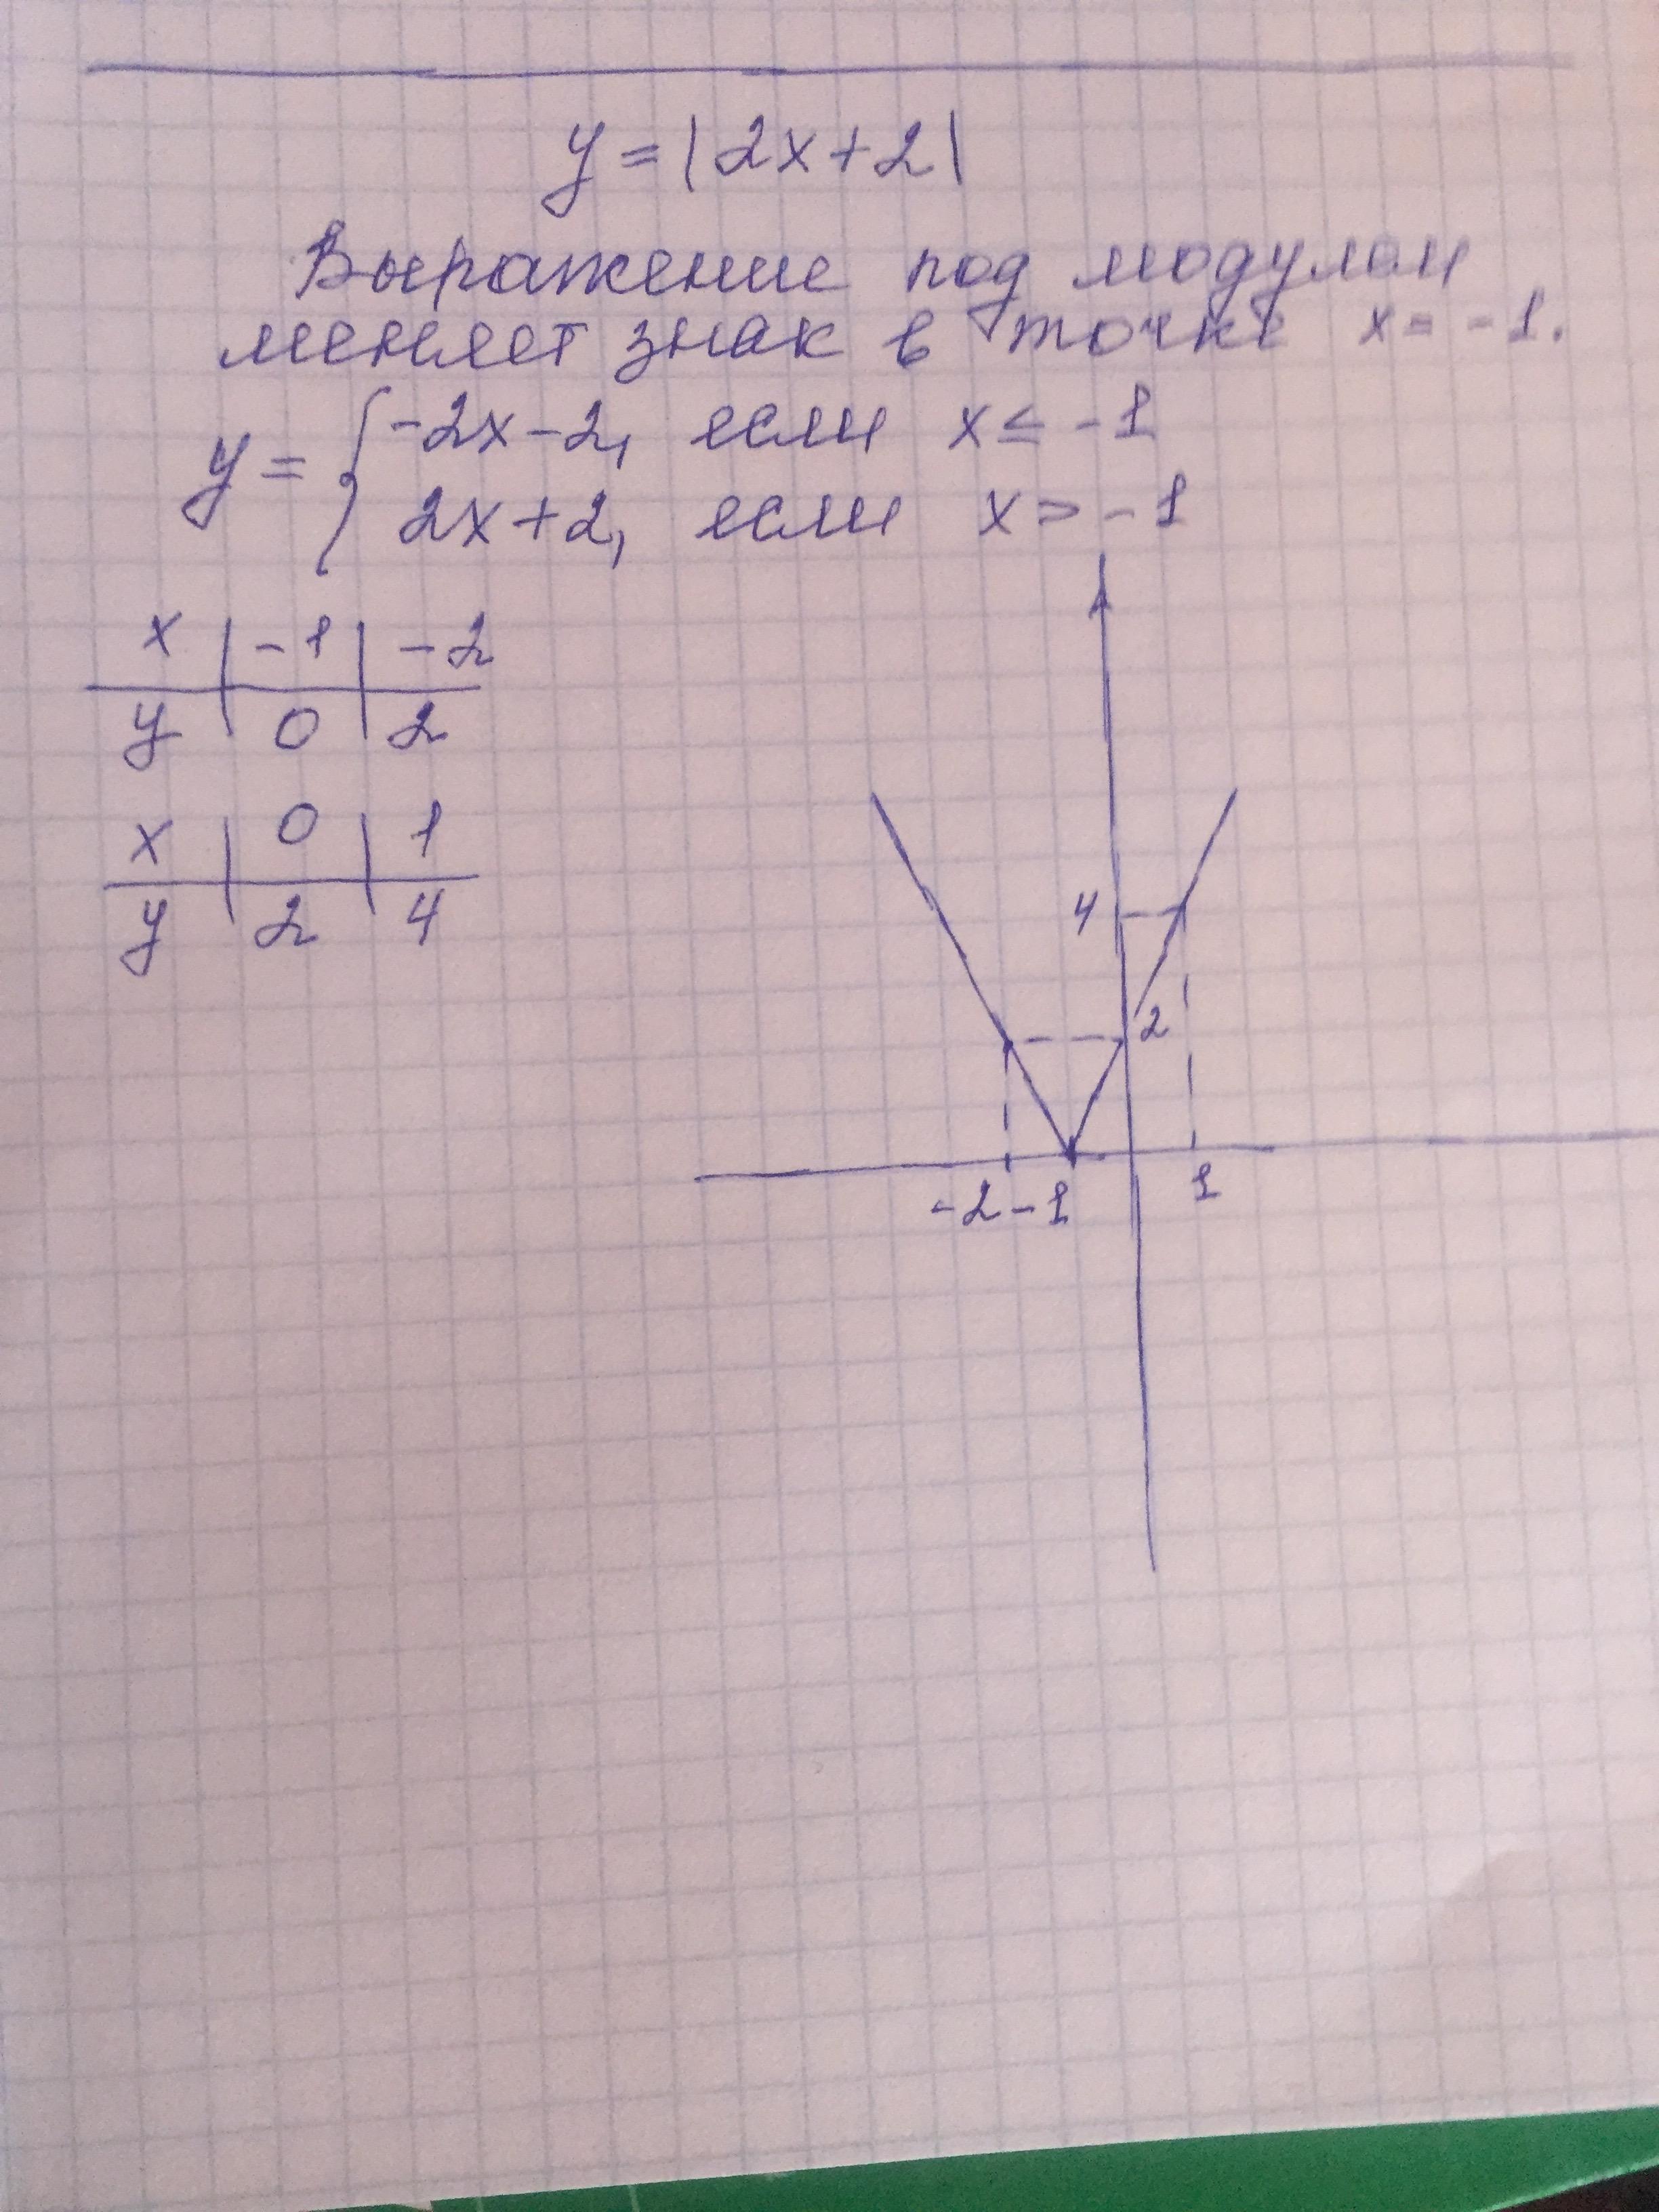 y = |2x+2|
Выражение под модулем
меняет знак в точке x = -1.
y = { -2x-2, если x ≤ -1
2x+2, если x > -1
x | -1 | -2
y | 0 | 2
x | 0 | 1
y | 2 | 4
4
2
-2 -1 1